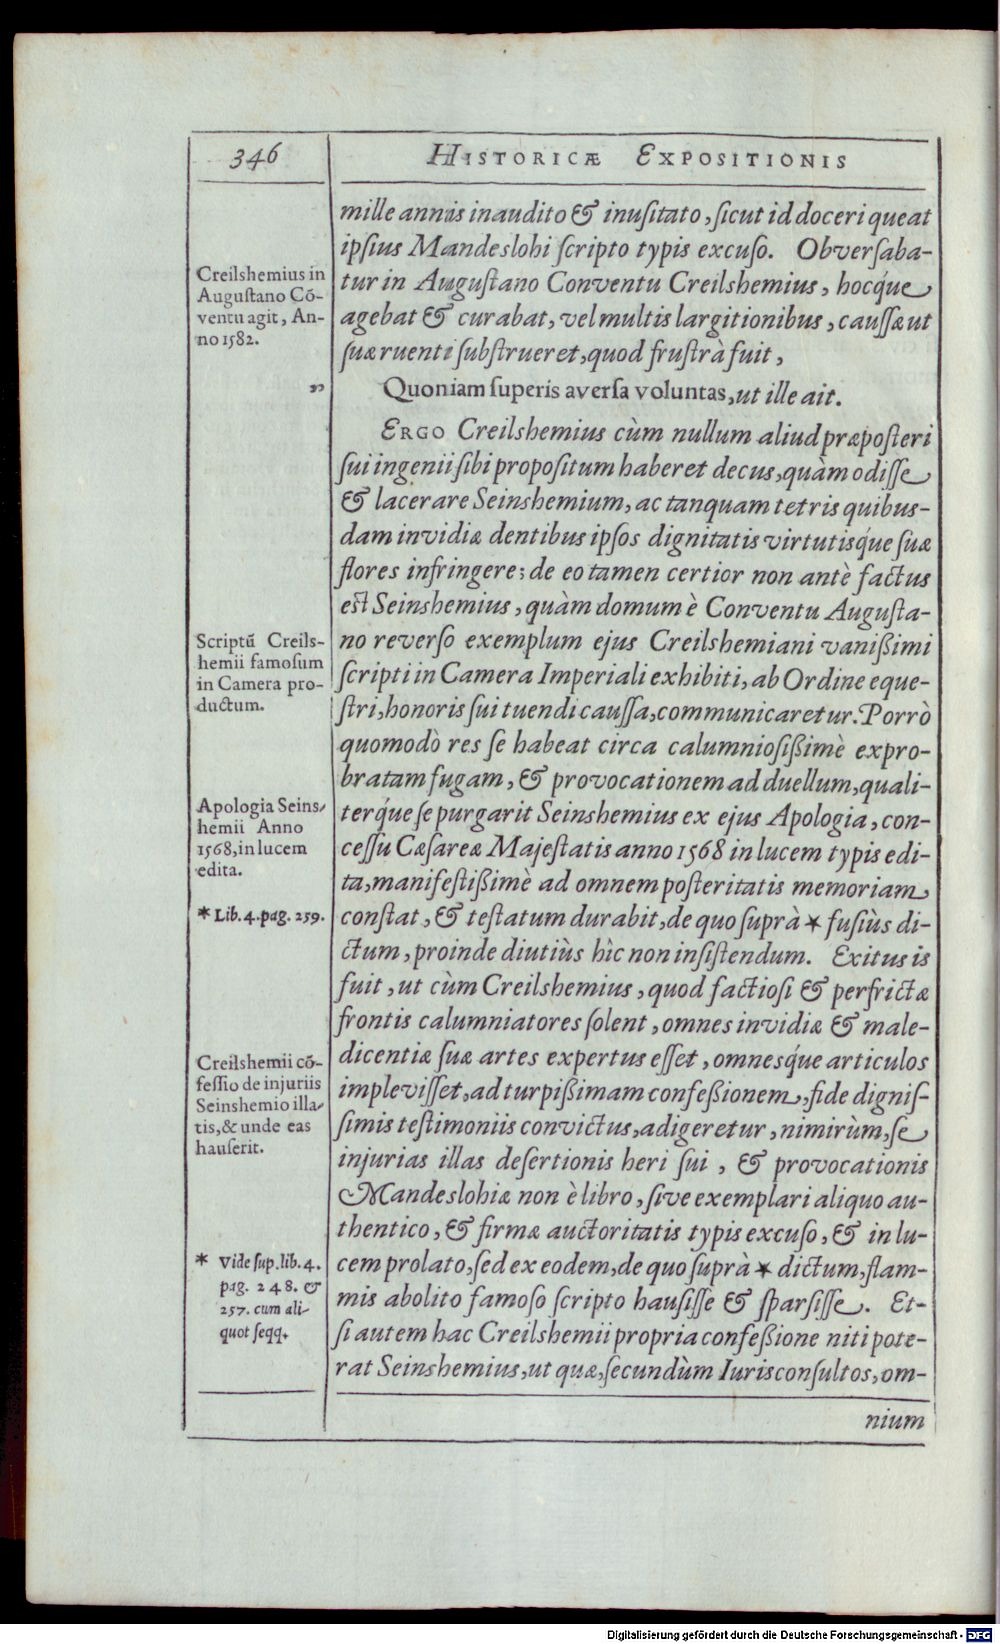 346
HISTORICÆ EXPOSITIONIS
mille annis inaudito & inuſitato, ſicut id doceri queat
ipſius Mandeslohi ſcripto typis excuſo. Obverſaba-
tur in Auguſtano Conventu Creilshemius, hocq́ue
agebat & curabat, vel multis largitionibus, cauſſæ ut
ſuæ ruenti ſubſtrueret, quod fruſtrà fuit,
Quoniam ſuperis averſa voluntas, ut ille ait.
ERGO Creilshemius cùm nullum aliud præpoſteri
ſui ingenii ſibi propoſitum haberet decus, quàm odiſſe
& lacerare Seinshemium, ac tanquam tetris quibus-
dam invidiæ dentibus ipſos dignitatis virtutisq́ue ſuæ
flores infringere; de eo tamen certior non antè factus
eſt Seinshemius, quàm domum è Conventu Auguſta-
no reverſo exemplum ejus Creilshemiani vanißimi
ſcripti in Camera Imperiali exhibiti, ab Ordine eque-
ſtri, honoris ſui tuendi cauſſa, communicaretur. Porrò
quomodò res ſe habeat circa calumnioſißimè expro-
bratam fugam, & provocationem ad duellum, quali-
terq́ue ſe purgarit Seinshemius ex ejus Apologia, con-
ceſſu Cæſareæ Majeſtatis anno 1568 in lucem typis edi-
ta, manifeſtißimè ad omnem poſteritatis memoriam
conſtat, & teſtatum durabit, de quo ſuprà * fuſiùs di-
ctum, proinde diutiùs hìc non inſiſtendum. Exitus is
fuit, ut cùm Creilshemius, quod factioſi & perfrictæ
frontis calumniatores ſolent, omnes invidiæ & male-
dicentiæ ſuæ artes expertus eſſet, omnesq́ue articulos
impleviſſet, ad turpißimam confeßionem, fide digniſ-
ſimis teſtimoniis convictus, adigeretur, nimirùm, ſe
injurias illas deſertionis heri ſui, & provocationis
Mandeslohiæ non è libro, ſive exemplari aliquo au-
thentico, & firmæ auctoritatis typis excuſo, & in lu-
cem prolato, ſed ex eodem, de quo ſuprà * dictum, flam-
mis abolito famoſo ſcripto hauſiſſe & ſparſiſſe. Et-
ſi autem hac Creilshemii propria confeßione niti pote-
rat Seinshemius, ut quæ, ſecundùm Iurisconſultos, om-
nium
Creilshemius in
Auguſtano Cō-
ventu agit, An-
no 1582.
„
Scriptū Creils-
hemii famoſum
in Camera pro-
ductum.
Apologia Seins-
hemii Anno
1568, in lucem
edita.
* Lib. 4. pag. 259.
Creilshemii cō-
feſſio de injuriis
Seinshemio illa-
tis, & unde eas
hauſerit.
* Vide ſup. lib. 4.
pag. 248. &
257. cum ali-
quot ſeqq.
Digitalisierung gefördert durch die Deutsche Forschungsgemeinschaft - DFG